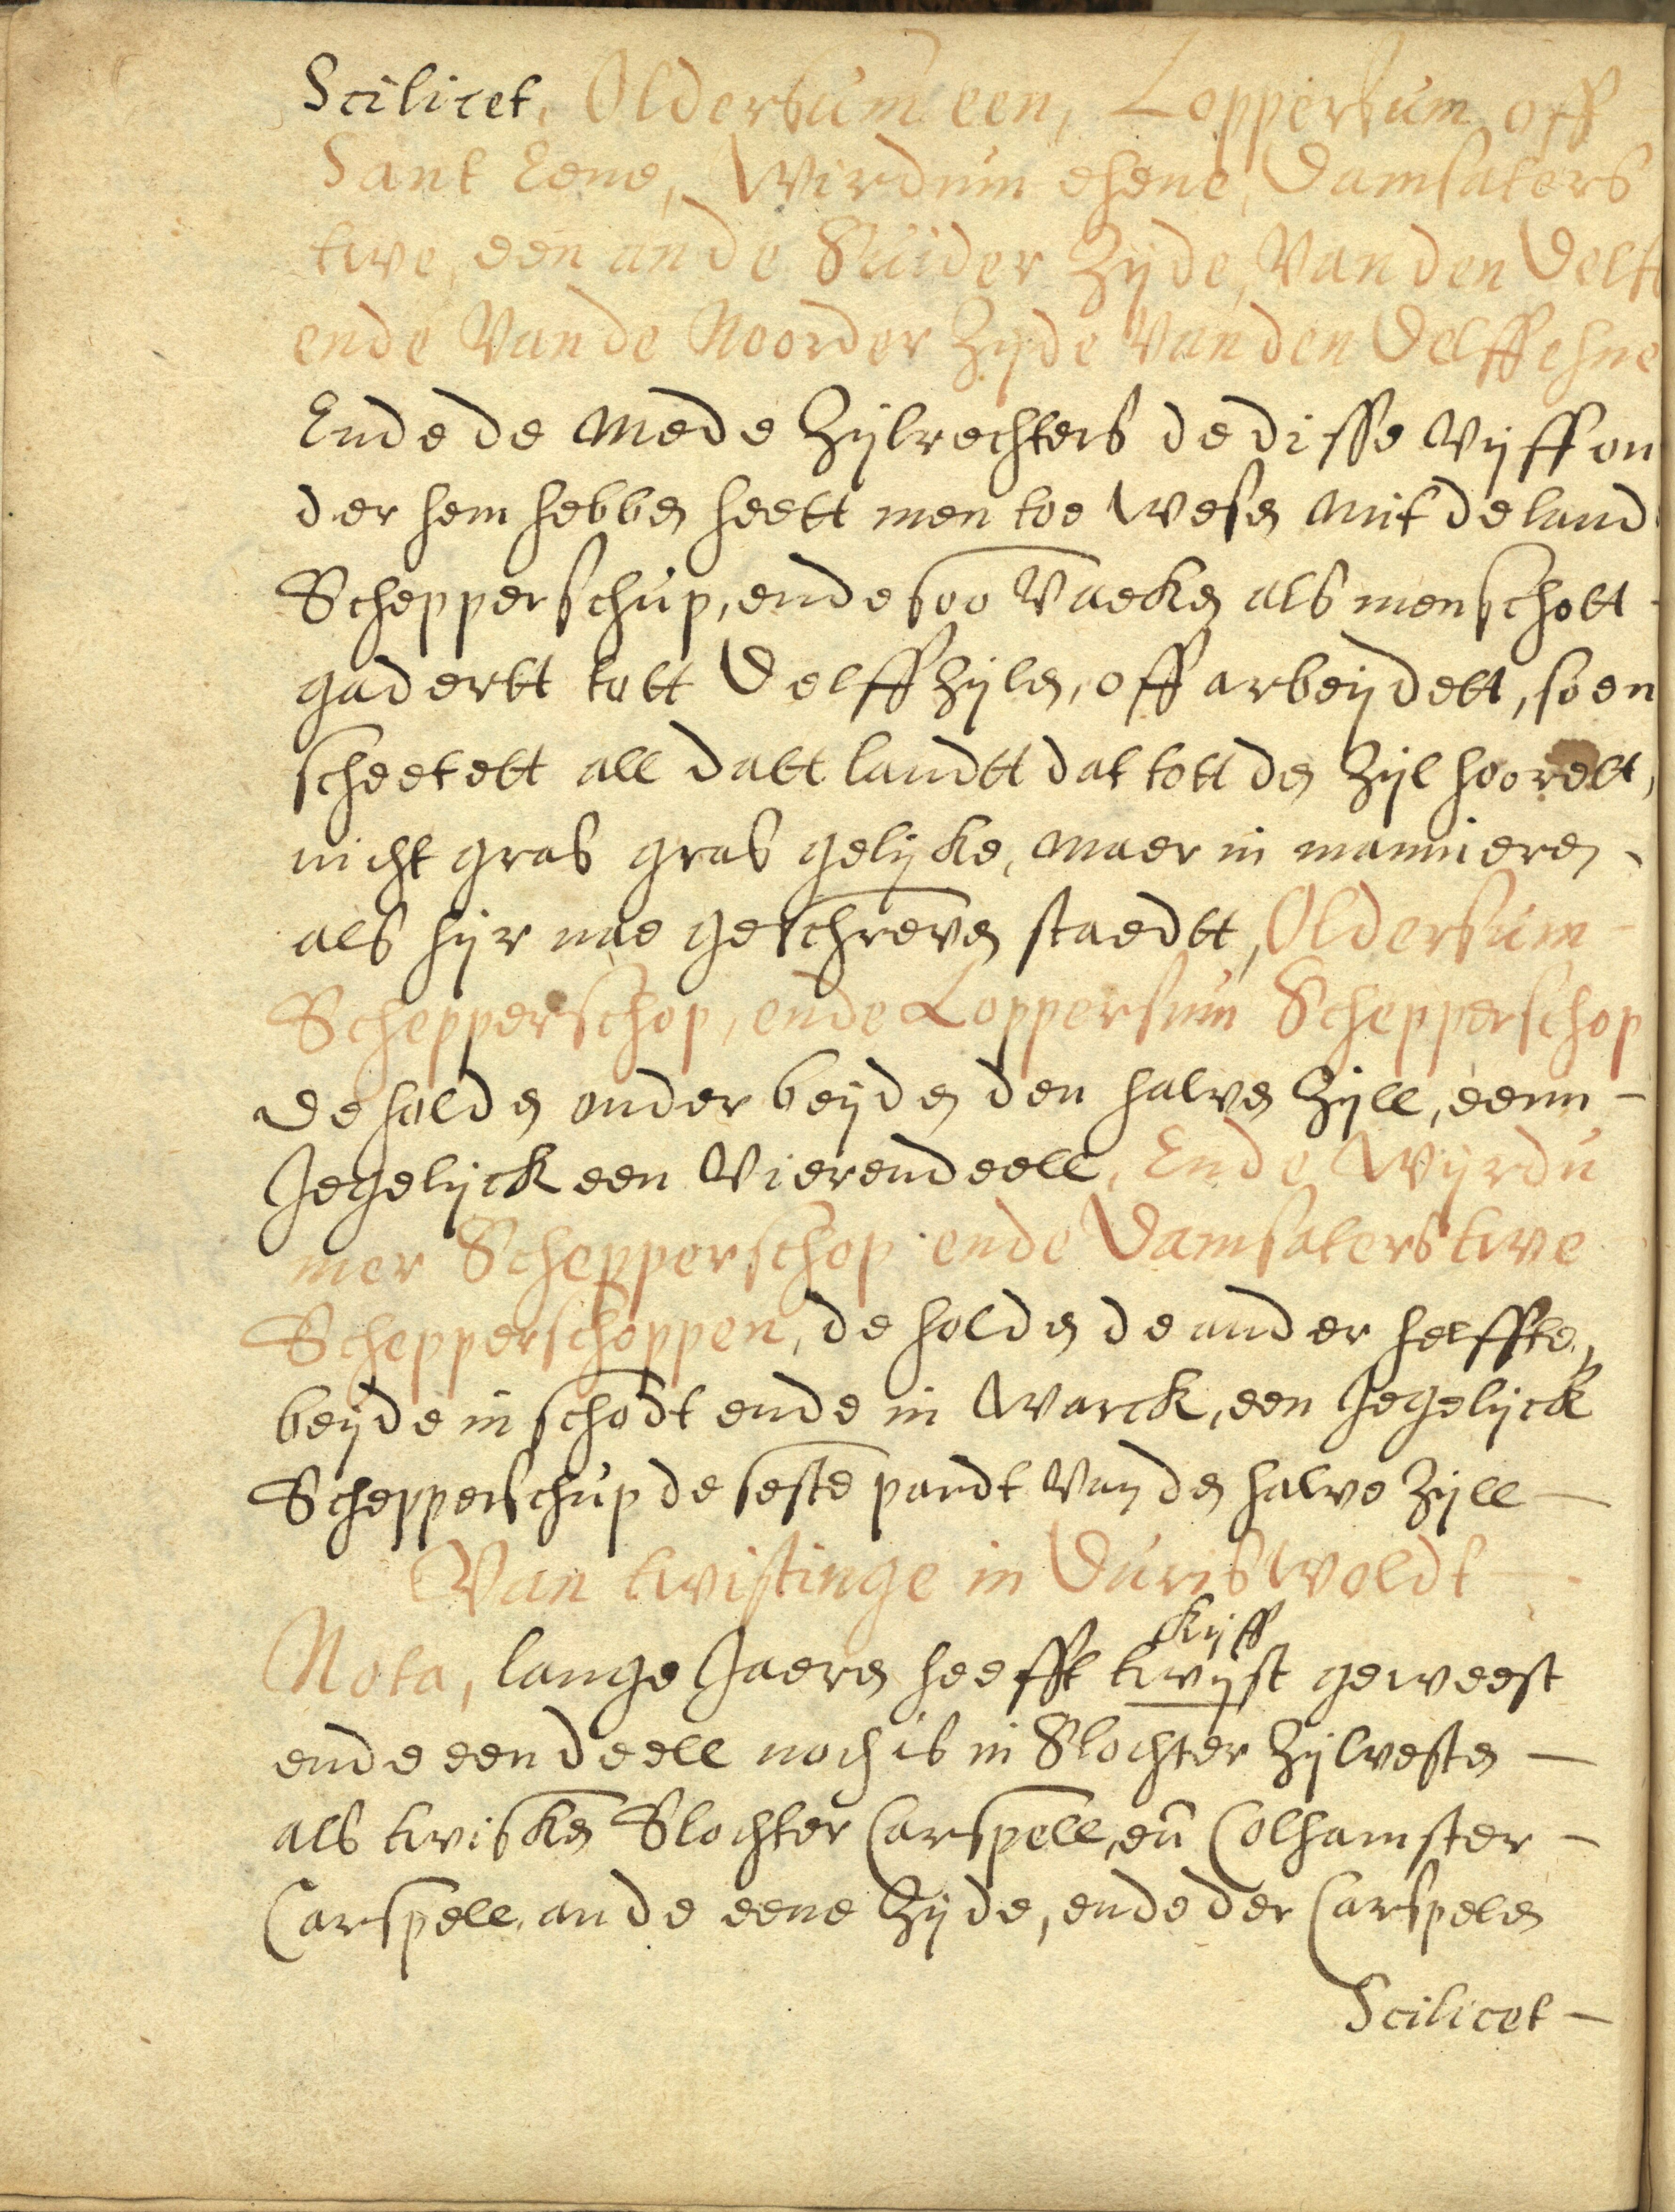 Scilicet, Oldersum een, Loppersum off
Sant Eene, Wirdum ehene, Damsaters
twe, een an de Suider Zijde, Van den Delff
ende Van de Noorder Zijde Van den Delff ehne
Ende de mede Zijlrechters de disse Vijff on
der hem hebben heett men toe wesen mit de land
Schepperschup, ende soo Vaeken als men schott
gadertt tott Delffzijlen, off arbeijdett, so en
scheetett all datt landtt dat tott den Zijl hoorett,
nicht gras gras gelijke, maer in mannieren
als hijr nae geschreven staedtt, Oldersum
Schepperschop, ende Loppersum Schepperschop
de holden onder beijden den halven Zijll, eenn
Jegelijck een Vierendeell, Ende Wijrdu
mer Schepperschop ende Damsaters twe
Schepperschoppen, de holden de ander helffte,
beijde in schodt ende in Warck, een Jegelijck
Schepperschup de seste pardt Van den halve Zijll
Van twistinge in Duriswoldt
Nota, lange Jaeren heefft twijst geweest
kijff
ende een deell noch is in Slochter Zijlvesten
als twisken Slochter Carspell, en̄ Colhamster
Carspell, an de eene Zijde, ende der Carspelen
Scilicet